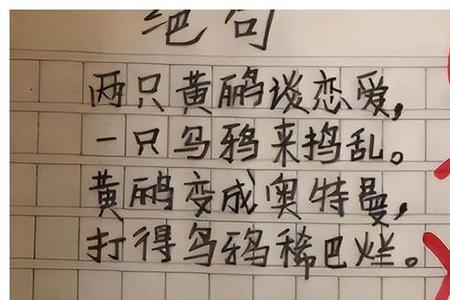 绝句
两只黄鹂谈恋爱,
一只乌鸦来捣乱。
黄鹂变成奥特曼,
打得乌鸦稀巴烂。